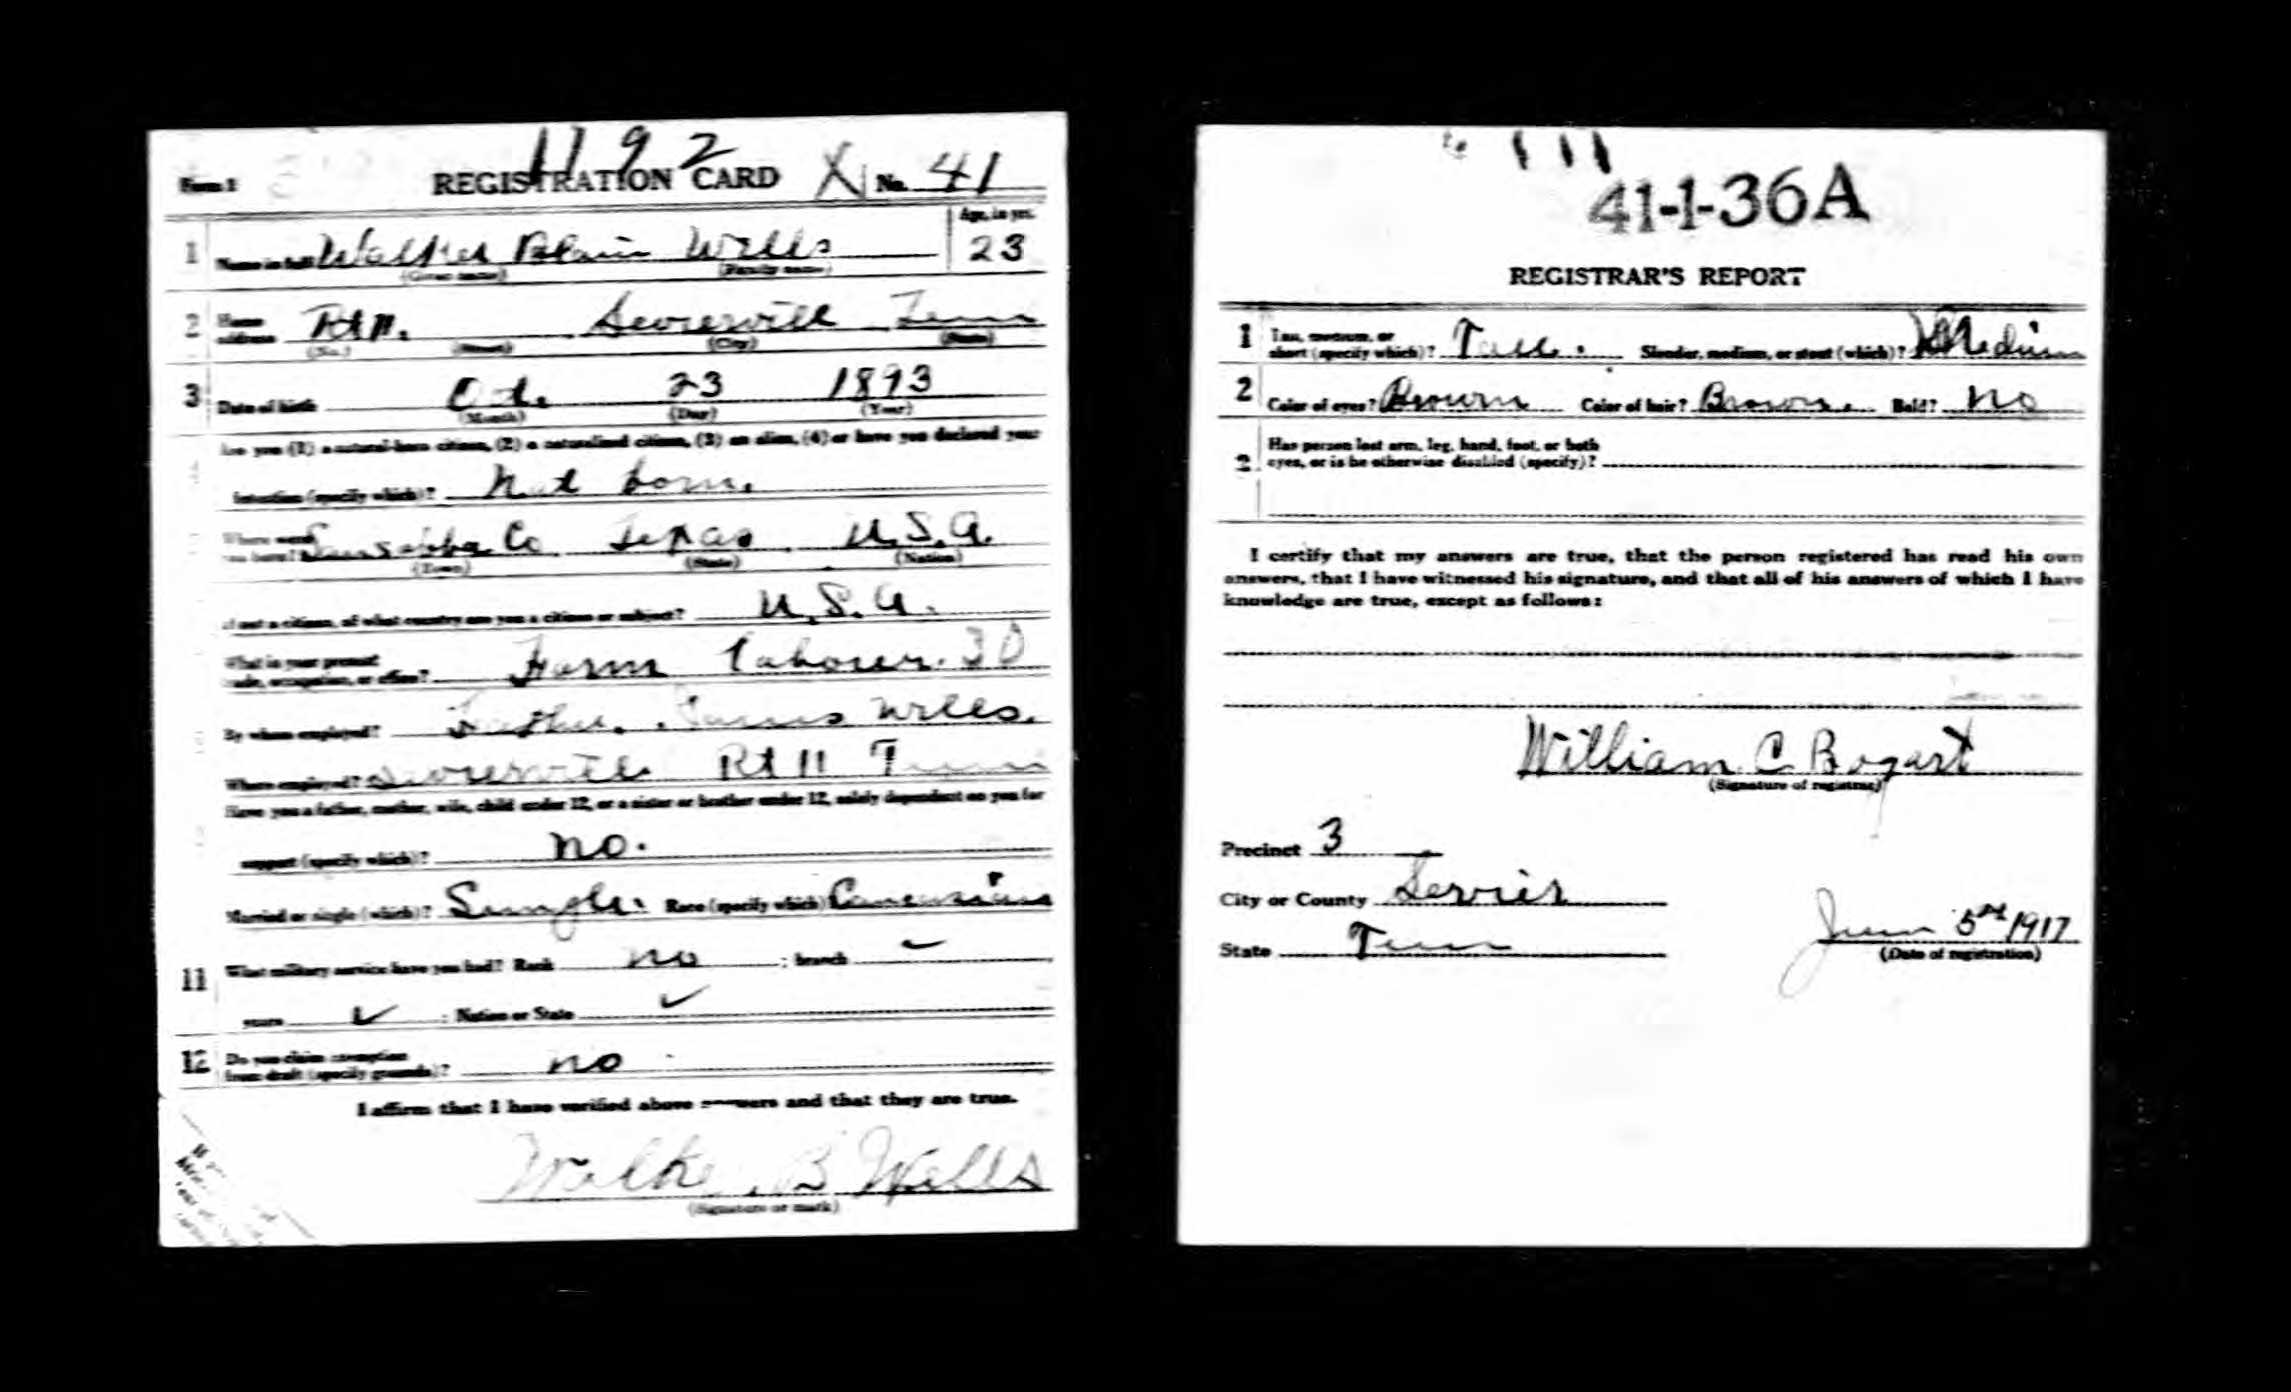 1192
Form 1 REGISTRATION CARD X No. 41
1 Name in full Walker Blain Wells Age, in yrs. 23
(Given name) (Family name)
2 Home address Rt 11. Sevierville Tenn
(No.) (Street) (City) (State)
3 Date of birth Oct. 23 1893
(Month) (Day) (Year)
Are you (1) a natural-born citizen, (2) a naturalized citizen, (3) an alien, (4) or have you declared your
intention (specify which)? Nat born.
Where were you born? Sansabba Co Texas U.S.A.
(Town) (State) (Nation)
If not a citizen, of what country are you a citizen or subject? U.S.A.
What is your present
trade, occupation, or office? Farm Laborer. 30
By whom employed? Father. James Wells.
Where employed? Sevierville Rt 11 Tenn
Have you a father, mother, wife, child under 12, or a sister or brother under 12, solely dependent on you for
support (specify which)? no.
Married or single (which)? Single. Race (specify which)? Caucasian
11 What military service have you had? Rank no ; branch
years ; Nation or State
12 Do you claim exemption
from draft (specify grounds)? no
I affirm that I have verified above answers and that they are true.
Walker B Wells
(Signature or mark)
41-1-36A
REGISTRAR'S REPORT
1 Tall, medium, or
short (specify which)? Tall. Slender, medium, or stout (which)? Medium
2 Color of eyes? Brown Color of hair? Brown Bald? No
3 Has person lost arm, leg, hand, foot, or both
eyes, or is he otherwise disabled (specify)?
I certify that my answers are true, that the person registered has read his own
answers, that I have witnessed his signature, and that all of his answers of which I have
knowledge are true, except as follows:
William C. Bogart
(Signature of registrar)
Precinct 3
City or County Sevier
State Tenn
June 5th 1917
(Date of registration)